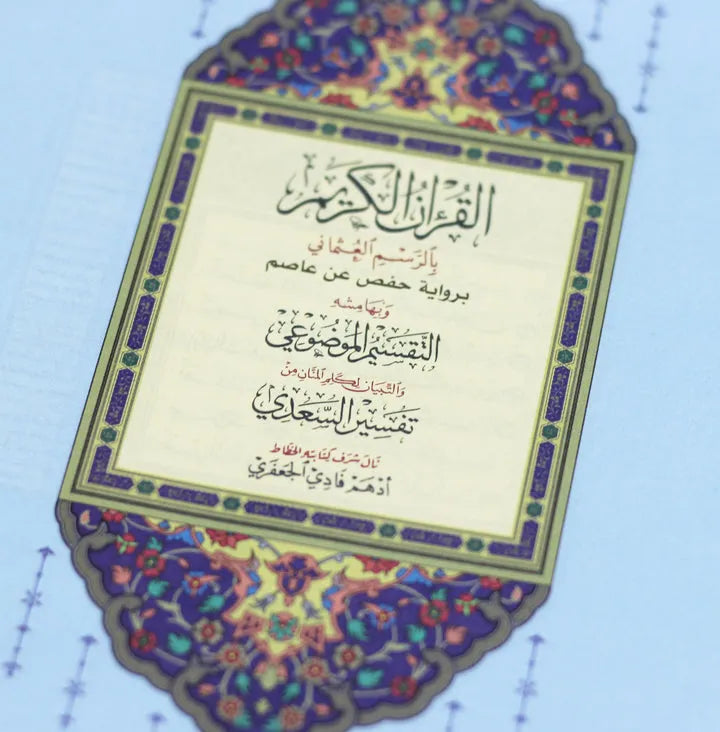 القُرْآنُ الكَرِيم
بِالرَّسْمِ العُثْمَانِي
برواية حفص عن عاصم
وَبِهَامِشِهِ
التَّقْسِيمُ المَوْضُوعِي
وَالتِّبْيَان لِكَلِمِ المَنَّانِ مِنْ
تَفْسِيرِ السَّعْدِي
نَالَ شَرَفَ كِتَابَتِهِ الخَطَّاط
أَدْهَم فَادِي الجَعْفَرِي